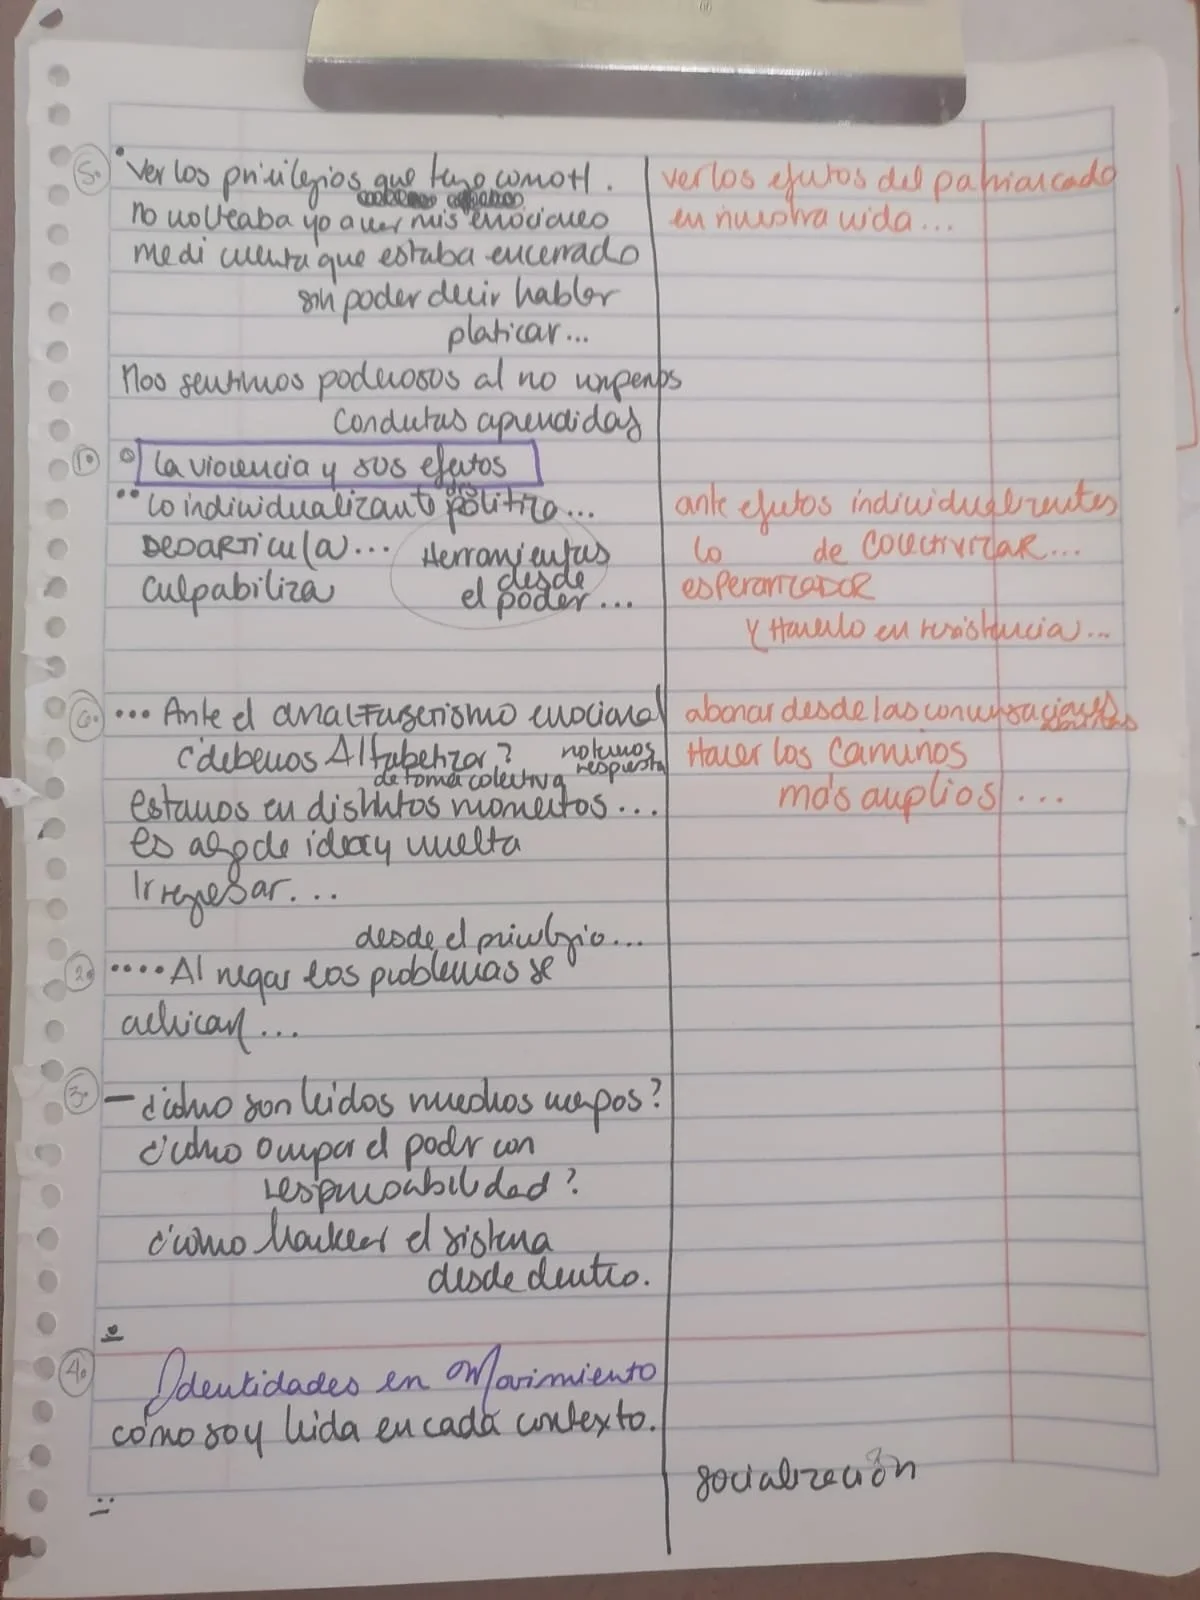 5. • Ver los privilegios que tengo como H.
no volteaba yo a ver mis emociones
me di cuenta que estaba encerrado
sin poder decir hablar
platicar...
Nos sentimos poderosos al no
Condutas aprendidas
ver los efectos del patriarcado
en nuestra vida...
1. ° La violencia y sus efectos
•• Lo individualizante política...
DESARTICULA...
Culpabiliza
Herramientas
desde
el poder...
ante efectos individualizantes
lo de COLECTIVIZAR...
esperanzADOR
Y Hacerlo en resistencia...
6. ... Ante el analfabetismo emocional
¿debemos Alfabetizar? no tenemos
respuesta
de toma colectiva
estamos en distintos momentos...
es algo de ida y vuelta
Ir regresar...
desde el privilegio...
abonar desde las conversaciones
Hacer los caminos
más amplios...
2. .... Al negar los problemas se
achican...
3. — ¿cómo son leidos nuestros cuerpos?
¿cómo ocupar el poder con
responsabilidad?
¿cómo hackear el sistema
desde dentro.
4. Identidades en Movimiento
cómo soy leida en cada contexto.
socialización